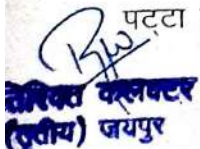 पट्टा
अतिरिक्त कलक्टर
(तृतीय) जयपुर